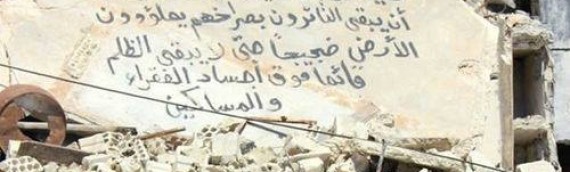 أن يبقى الثائرون بصراخهم يملؤون
الأرض ضجيجاً حتى لا يبقى الظلم
قائما فوق أجساد الفقراء
والمساكين